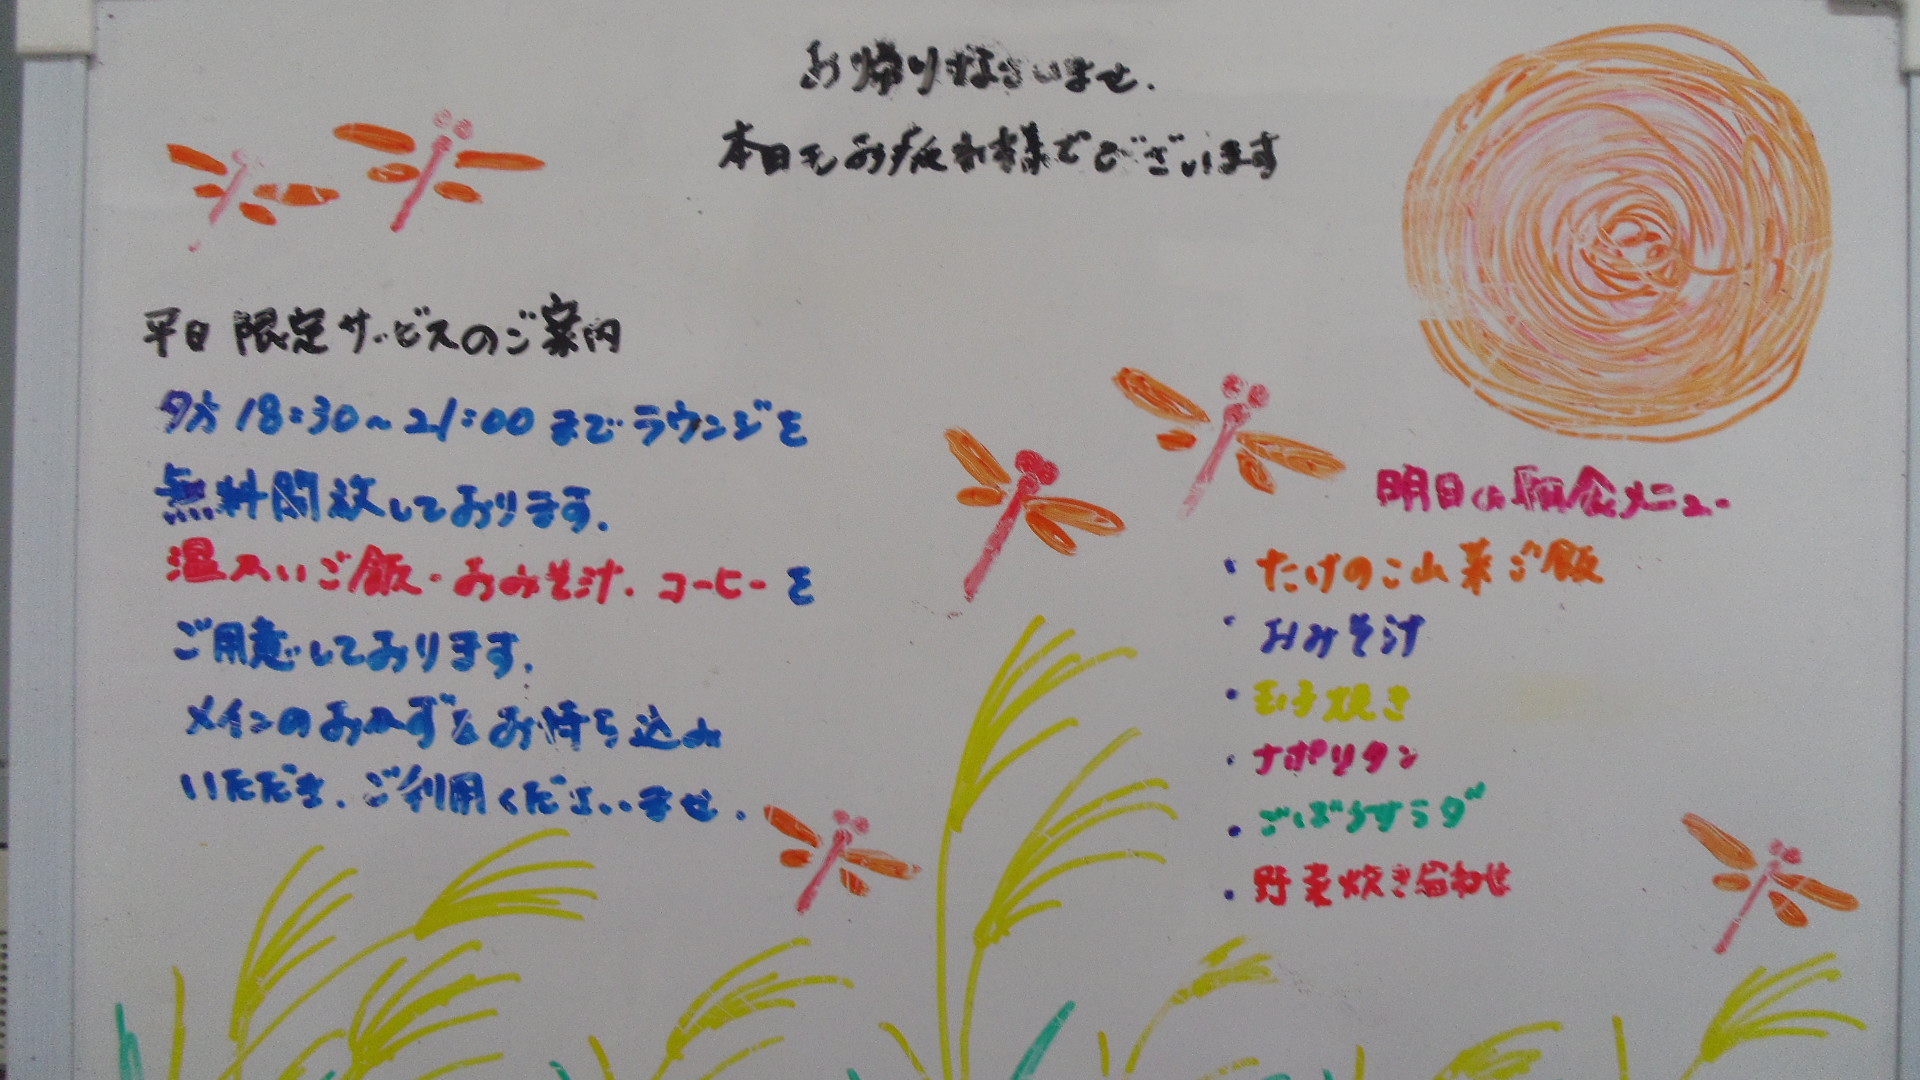 お帰りなさいませ.
本日もお疲れ様でございます
平日限定サービスのご案内
夕方18:30~21:00までラウンジを
無料開放しております.
温かいご飯・おみそ汁.コーヒーを
ご用意しております.
メインのおかずをお持ち込み
いただき.ご利用くださいませ.
明日の朝食メニュー
・たけのこ山菜ご飯
・おみそ汁
・玉子焼き
・ナポリタン
・ごぼうサラダ
・野菜炊き合わせ